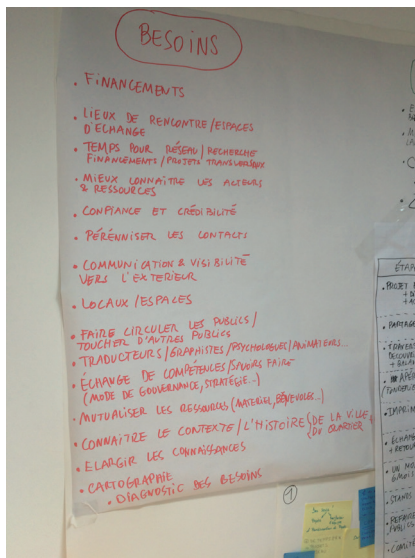 BESOINS
• FINANCEMENTS
• LIEUX DE RENCONTRE/ESPACES
D'ECHANGE
• TEMPS POUR RÉSEAU/RECHERCHE
FINANCEMENTS/PROJETS TRANSVERSAUX
• MIEUX CONNAÎTRE LES ACTEURS
& RESSOURCES
• CONFIANCE ET CRÉDIBILITÉ
• PÉRÉNNISER LES CONTACTS
• COMMUNICATION & VISIBILITÉ
VERS L'EXTERIEUR
• LOCAUX/ESPACES
• FAIRE CIRCULER LES PUBLICS/
TOUCHER D'AUTRES PUBLICS
• TRADUCTEURS/GRAPHISTES/PSYCHOLOGUES/ANIMATEURS...
• ÉCHANGE DE COMPÉTENCES/SAVOIRS FAIRE
(MODE DE GOUVERNANCE, STRATÉGIE...)
• MUTUALISER LES RESSOURCES, (MATERIEL, BÉNÉVOLES...)
• CONNAITRE LE CONTEXTE/L'HISTOIRE { DE LA VILLE +
DU QUARTIER
• ELARGIR LES CONNAISSANCES
• CARTOGRAPHIE
• DIAGNOSTIC DES BESOINS
1
ÉTAP
• PROJET
• PARTAGE
• IMPRIM
• ÉCHANG
+ RETOU
• UN MO
• STANDS